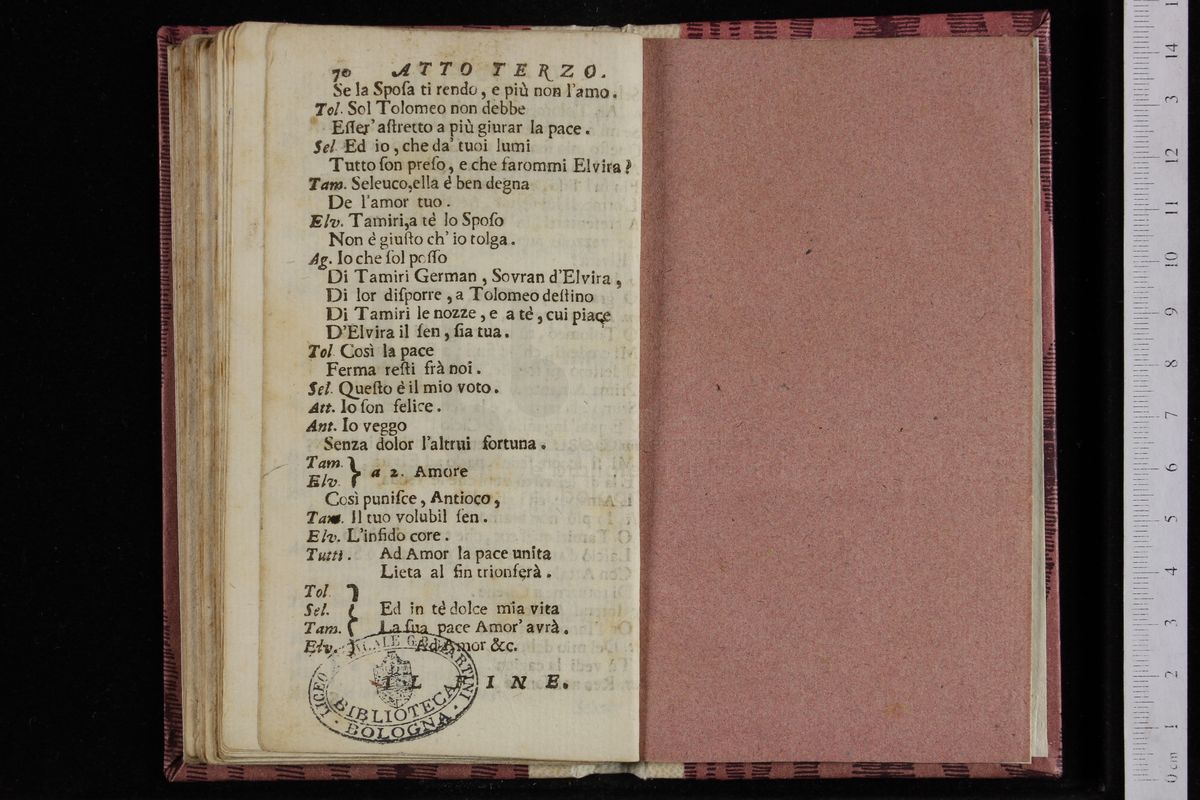 70 ATTO TERZO.
Se la Sposa ti rendo, e più non l'amo.
Tol. Sol Tolomeo non debbe
Esser' astretto a più giurar la pace.
Sel. Ed io, che da' tuoi lumi
Tutto son preso, e che farommi Elvira?
Tam. Seleuco, ella è ben degna
De l'amor tuo.
Elv. Tamiri, a tè lo Sposo
Non è giusto ch' io tolga.
Ag. Io che sol posso
Di Tamiri German, Sovran d'Elvira,
Di lor disporre, a Tolomeo destino
Di Tamiri le nozze, e a tè, cui piace
D'Elvira il sen, sia tua.
Tol. Così la pace
Ferma resti frà noi.
Sel. Questo è il mio voto.
Att. Io son felice.
Ant. Io veggo
Senza dolor l'altrui fortuna.
Tam. } a 2. Amore
Elv. }
Così punisce, Antioco,
Tam. Il tuo volubil sen.
Elv. L'infido core.
Tutti. Ad Amor la pace unita
Lieta al fin trionferà.
Tol. }
Sel. { Ed in tè dolce mia vita
Tam. { La sua pace Amor' avrà.
Elv. } Ad Amor &c.
IL FINE.
LICEO MUSICALE G.B. MARTINI
BIBLIOTECA
· BOLOGNA ·
0 cm 1 2 3 4 5 6 7 8 9 10 11 12 3 14